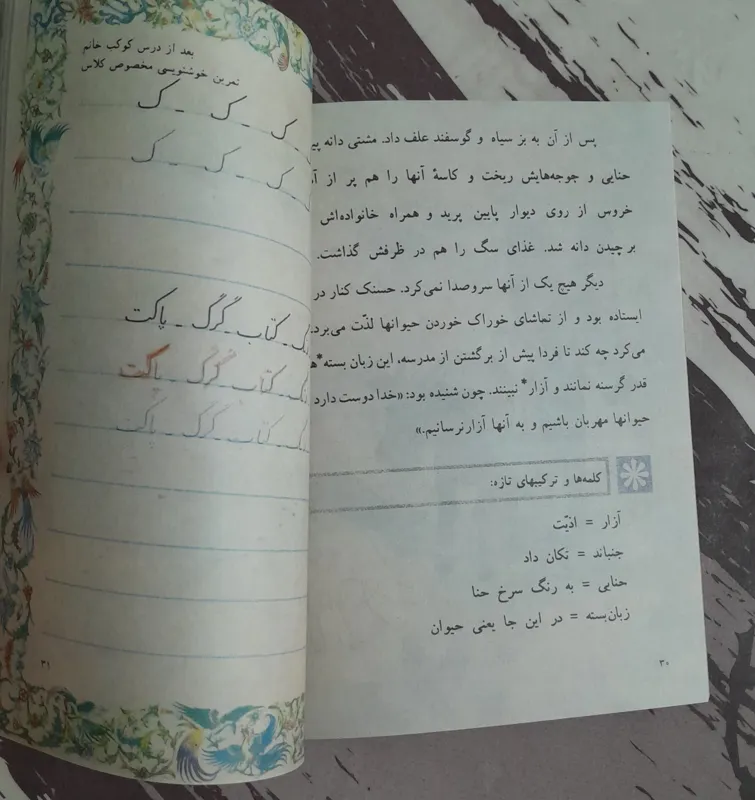 پس از آن به بز سیاه و گوسفند علف داد. مشتی دانه
حنایی و جوجه‌هایش ریخت و کاسهٔ آنها را هم پر از
خروس از روی دیوار پایین پرید و همراه خانواده‌اش
برچیدن دانه شد. غذای سگ را هم در ظرفش گذاشت.
دیگر هیچ یک از آنها سروصدا نمی‌کرد. حسنک کنار در
ایستاده بود و از تماشای خوراک خوردن حیوانها لذّت می‌برد.
می‌کرد چه کند تا فردا پیش از برگشتن از مدرسه، این زبان بسته*
قدر گرسنه نمانند و آزار* نبینند. چون شنیده بود: «خدا دوست دارد
حیوانها مهربان باشیم و به آنها آزار نرسانیم.»
کلمه‌ها و ترکیبهای تازه:
آزار = اذیّت
جنباند = تکان داد
حنایی = به رنگ سرخ حنا
زبان‌بسته = در این جا یعنی حیوان
۳۰
بعد از درس کوکب خانم
تمرین خوشنویسی مخصوص کلاس
ک - ک - ک
ک - ک - ک
کتاب - گرگ - پاکت
کتاب - گرگ - پاکت
کتاب - گرگ - پاکت
۳۱